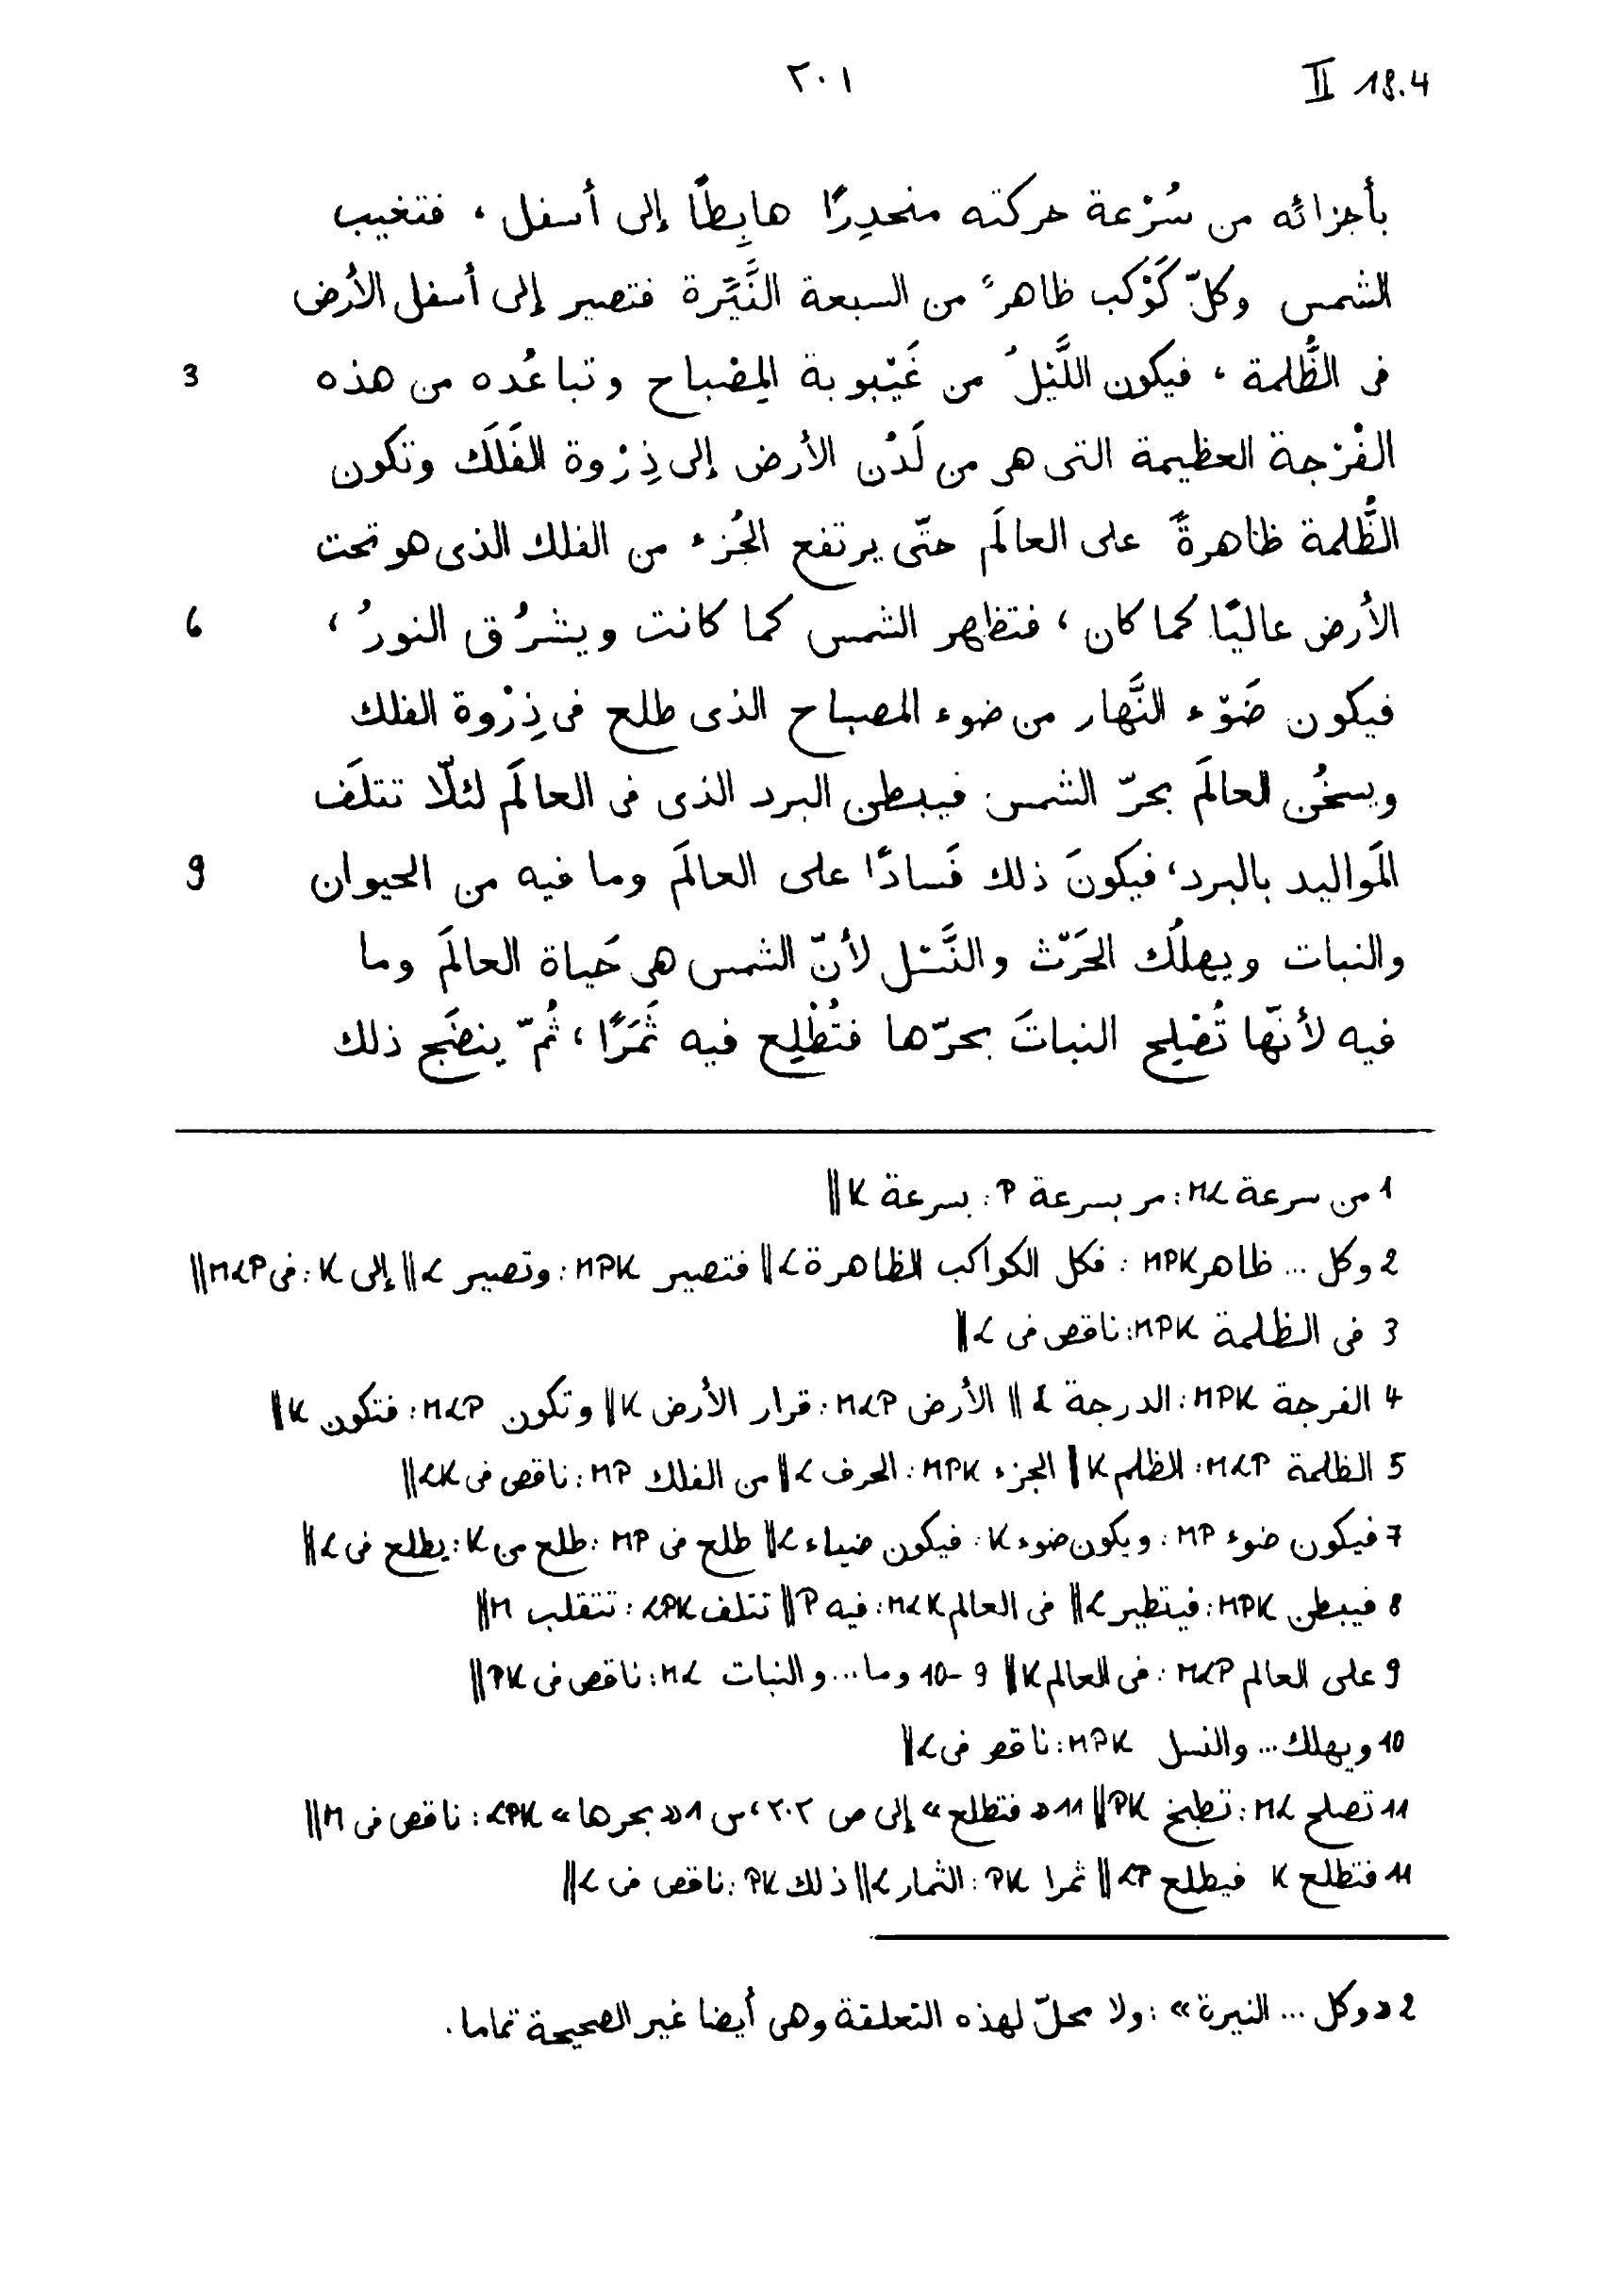 ٢٠١ II 18.4
بأجزائه من سُرْعة حركته منحدِرًا هابِطًا إلى أسفل ، فتغيب
الشمس وكلّ كَوْكب ظاهرٌ من السبعة النَّيِّرة فتصير إلى أسفل الأرض
فى الظُّلمة ، فيكون اللَّيْلُ من غَيْبوبة المِصْباح وتباعُده من هذه 3
الفُرْجة العظيمة التى هى من لَدُن الأرض إلى ذِرْوة الفَلَك وتكون
الظُّلمة ظاهرةً على العالَم حتّى يرتفع الجُزء من الفلك الذى هو تحت
الأرض عاليًا كما كان ، فتظهر الشمس كما كانت ويشرُق النورُ ، 6
فيكون ضَوْء النَّهار من ضوء المصباح الذى طلع فى ذِرْوة الفلك
ويسخُن العالَم بحرّ الشمس فيبطن البرد الذى فى العالَم لئلّا تتلَف
المَواليد بالبرد ، فيكونَ ذلك فَسادًا على العالَم وما فيه من الحيوان 9
والنبات ويهلُك الحَرْث والنَّسْل لأنّ الشمس هى حَياة العالَم وما
فيه لأنّها تُصْلِح النباتَ بحرّها فتُطْلِع فيه ثَمَرًا ، ثُمّ ينضَج ذلك
1 من سرعة ML: مر بسرعة P: بسرعة K ||
2 وكل ... ظاهر MPK : فكل الكواكب الظاهرة L || فتصير MPK: وتصير L || إلى K: فى MLP ||
3 فى الظلمة MPK: ناقص فى L ||
4 الفرجة MPK: الدرجة L || الأرض MLP: قرار الأرض K || وتكون MLP: فتكون K ||
5 الظلمة MLP: الظلم K || الجزء MPK: الحرف L || من الفلك MP: ناقص فى LK ||
7 فيكون ضوء MP: ويكون ضوء K: فيكون ضياء L || طلع فى MP: طلع من K: يطلع فى L ||
8 فيبطن MPK: فيتطير L || فى العالم MLK: فيه P || تتلف LPK: تتقلب M ||
9 على العالم MLP: فى العالم K || 9-10 وما ... والنبات ML: ناقص فى PK ||
10 ويهلك ... والنسل MPK: ناقص فى L ||
11 تصلح ML: تطبخ PK || 11 « فتطلع » إلى ص ٢٠٢ ، س 1 « بحرها » LPK: ناقص فى M ||
11 فتطلع K فيطلع LP || ثمرا PK: الثمار L || ذلك PK: ناقص فى L ||
2 « وكل ... النيرة » : ولا محلّ لهذه التعلقة وهى أيضا غير الصحيحة تماما .